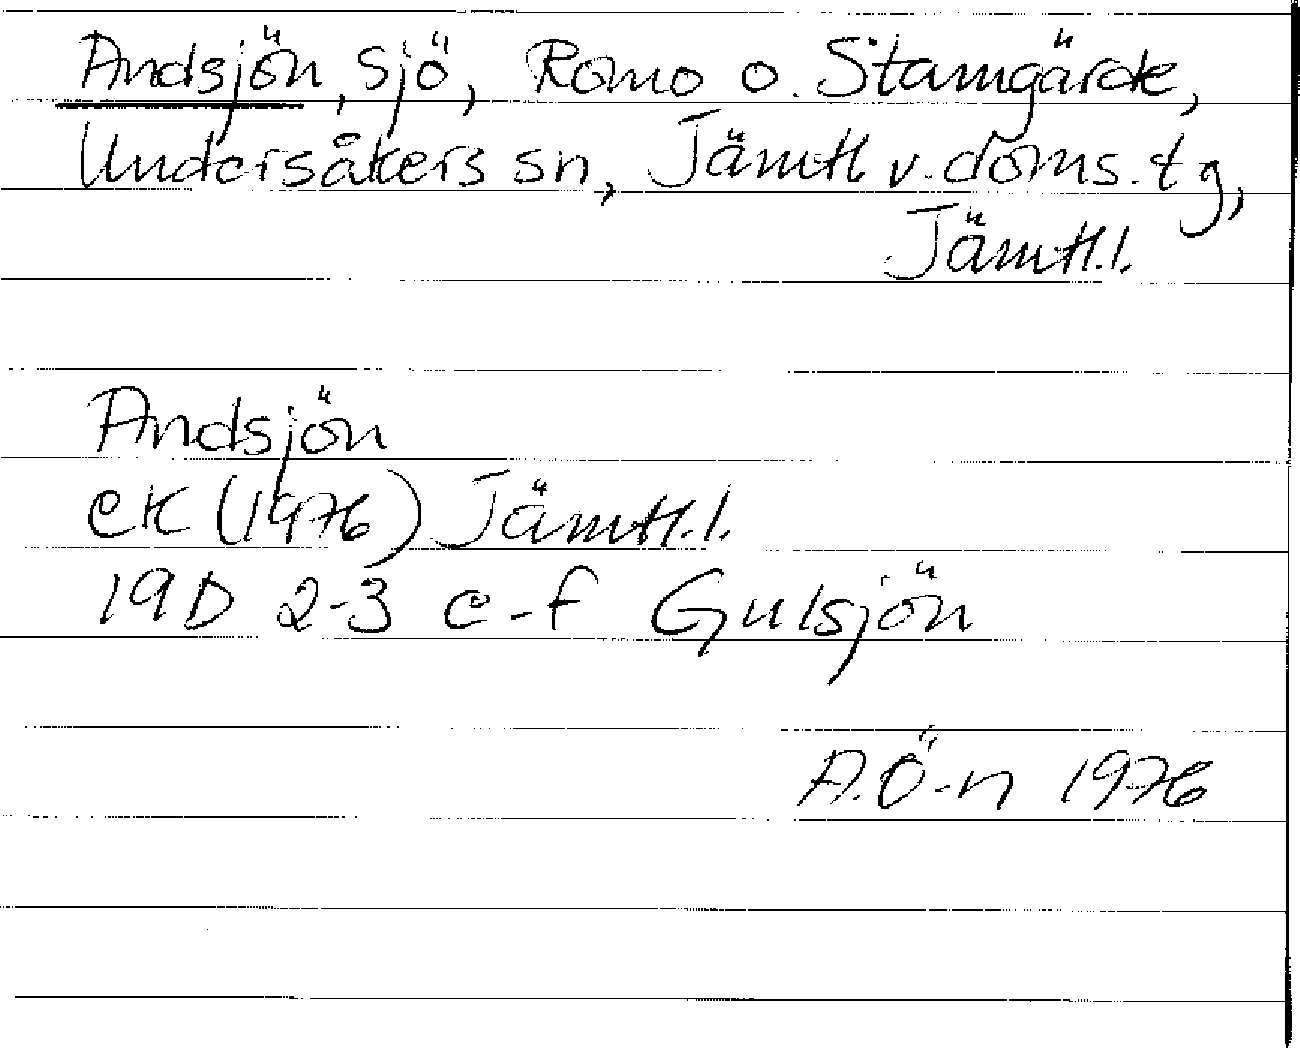 Andsjön, sjö, Romo o. Stamgärde,
Undersåkers sn, Jämtl v. doms. tg,
Jämtl.l.
Andsjön
eK (1976) Jämtl.l.
19D 2-3 e-f Gulsjön
A.Ö-n 1976